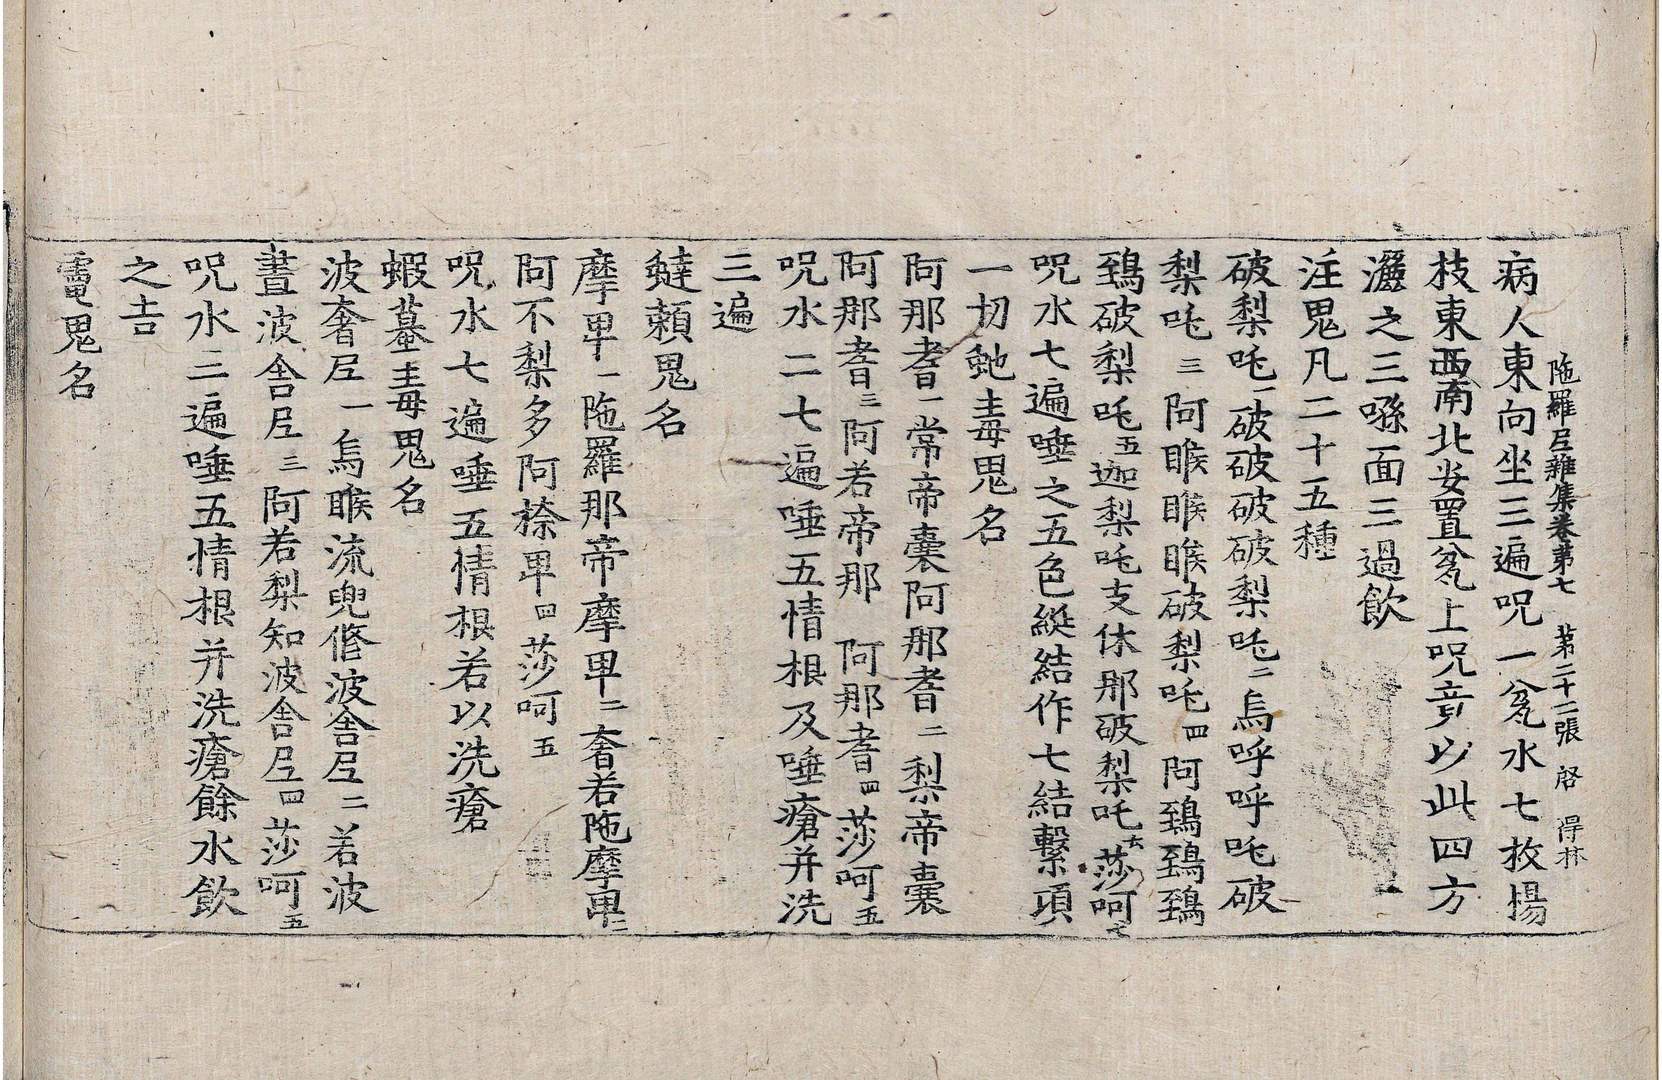 陁羅尼雜集卷第七　第二十二張　啓　得林
病人東向坐三遍呪一瓮水七枚楊
枝東西南北安置瓮上呪竟以此四方
灑之三噀面三過飲
注鬼凡二十五種
破梨吒一破破破破梨吒二烏呼呼吒破
梨吒三阿睺睺睺破梨吒四阿鵄鵄鵄
鵄破梨吒五迦梨吒支休那破梨吒六莎呵七
呪水七遍唾之五色綖結作七結繫項
一切虵毒鬼名
阿那耆一常帝囊阿那耆二梨帝囊
阿那耆三阿若帝那　阿那耆四莎呵五
呪水二七遍唾五情根及唾瘡并洗
三遍
鬼名
摩卑一陁羅那帝摩卑二奢若陁摩卑三
阿不梨多阿捺卑四莎呵五
呪水七遍唾五情根若以洗瘡
蝦蟇毒鬼名
波奢尼一烏睺流兜俢波舍尼二若波
晝波舍尼三阿若梨知波舍尼四莎呵五
呪水三遍唾五情根并洗瘡餘水飲
之吉
鬼名